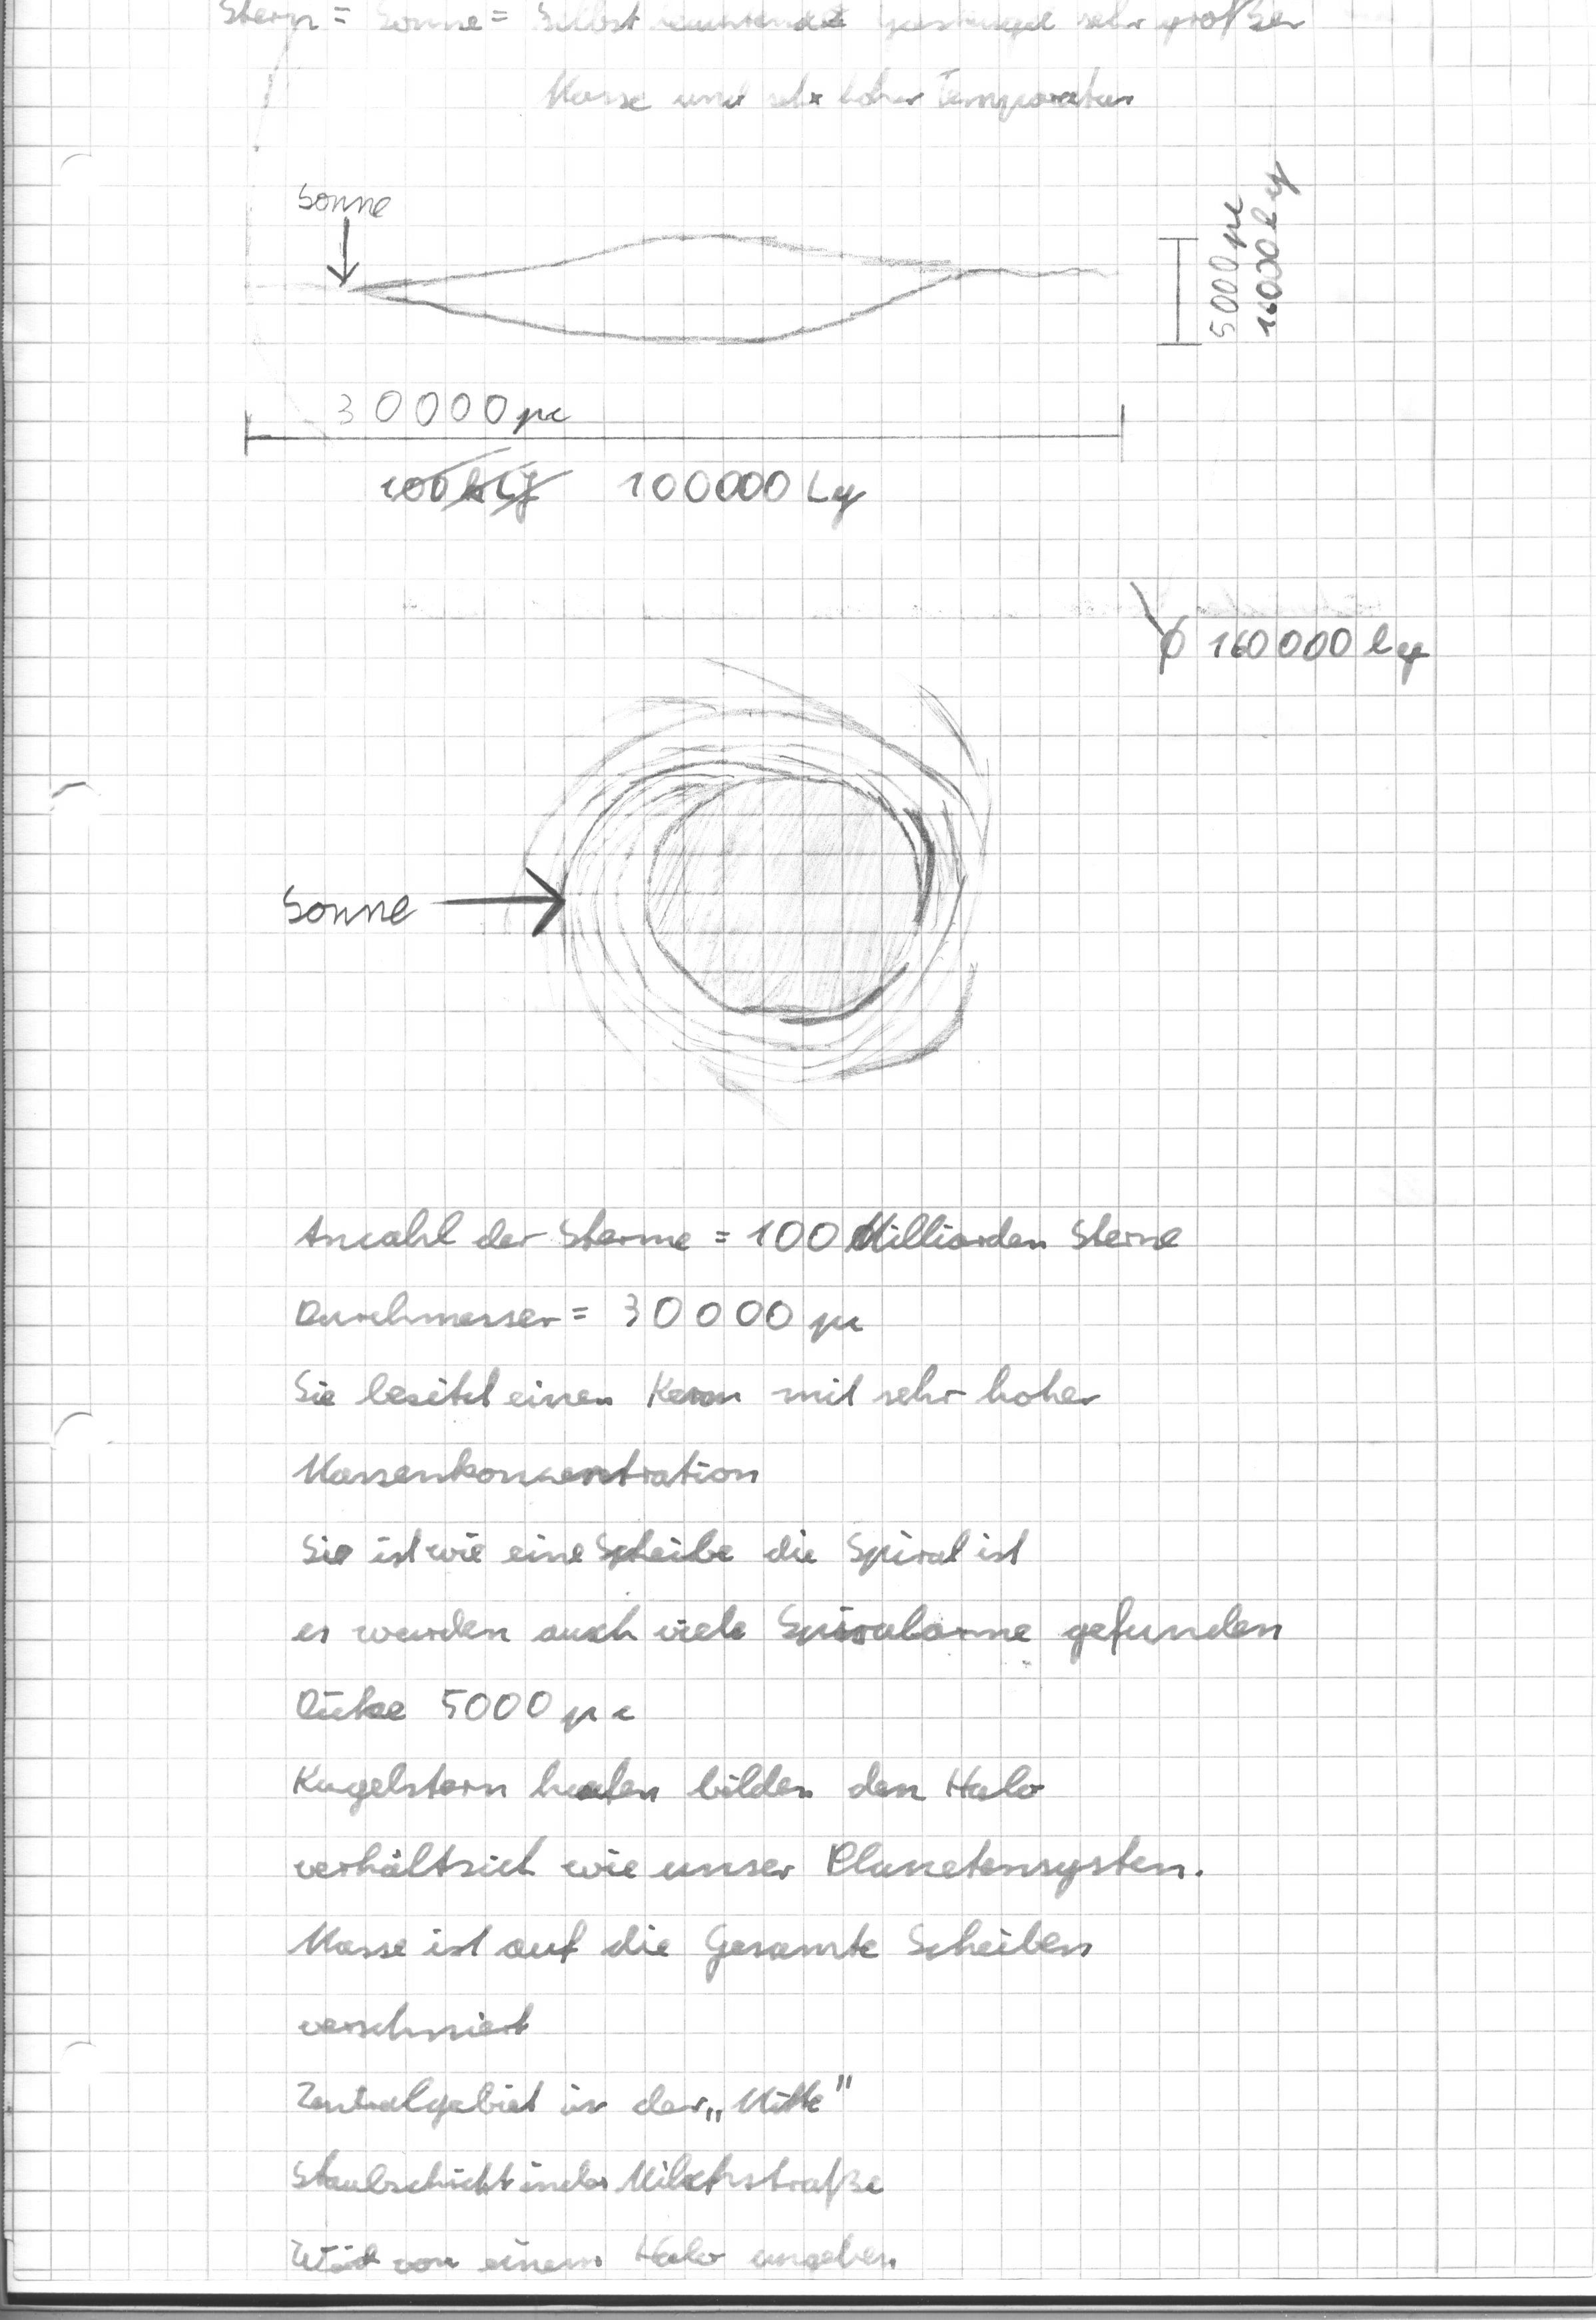 Stern = Sonne = Selbst leuchtende Gaskugel sehr großer
Masse und sehr hoher Temperatur
Sonne
5000 pc
16000 ly
30000 pc
100000 Ly
Ø 160000 ly
Sonne
Anzahl der Sterne = 100 Milliarden Sterne
Durchmesser = 30000 pc
Sie besitzt einen Kern mit sehr hoher
Massenkonzentration
Sie ist wie eine Scheibe die Spiral ist
es wurden auch viele Spiralarme gefunden
Dicke 5000 pc
Kugelstern haufen bilden den Halo
verhält sich wie unser Planetensystem.
Masse ist auf die Gesamte Scheiben
verschmiert
Zentralgebiet in der „Mitte"
Staubschicht in der Milchstraße
Wird von einem Halo umgeben